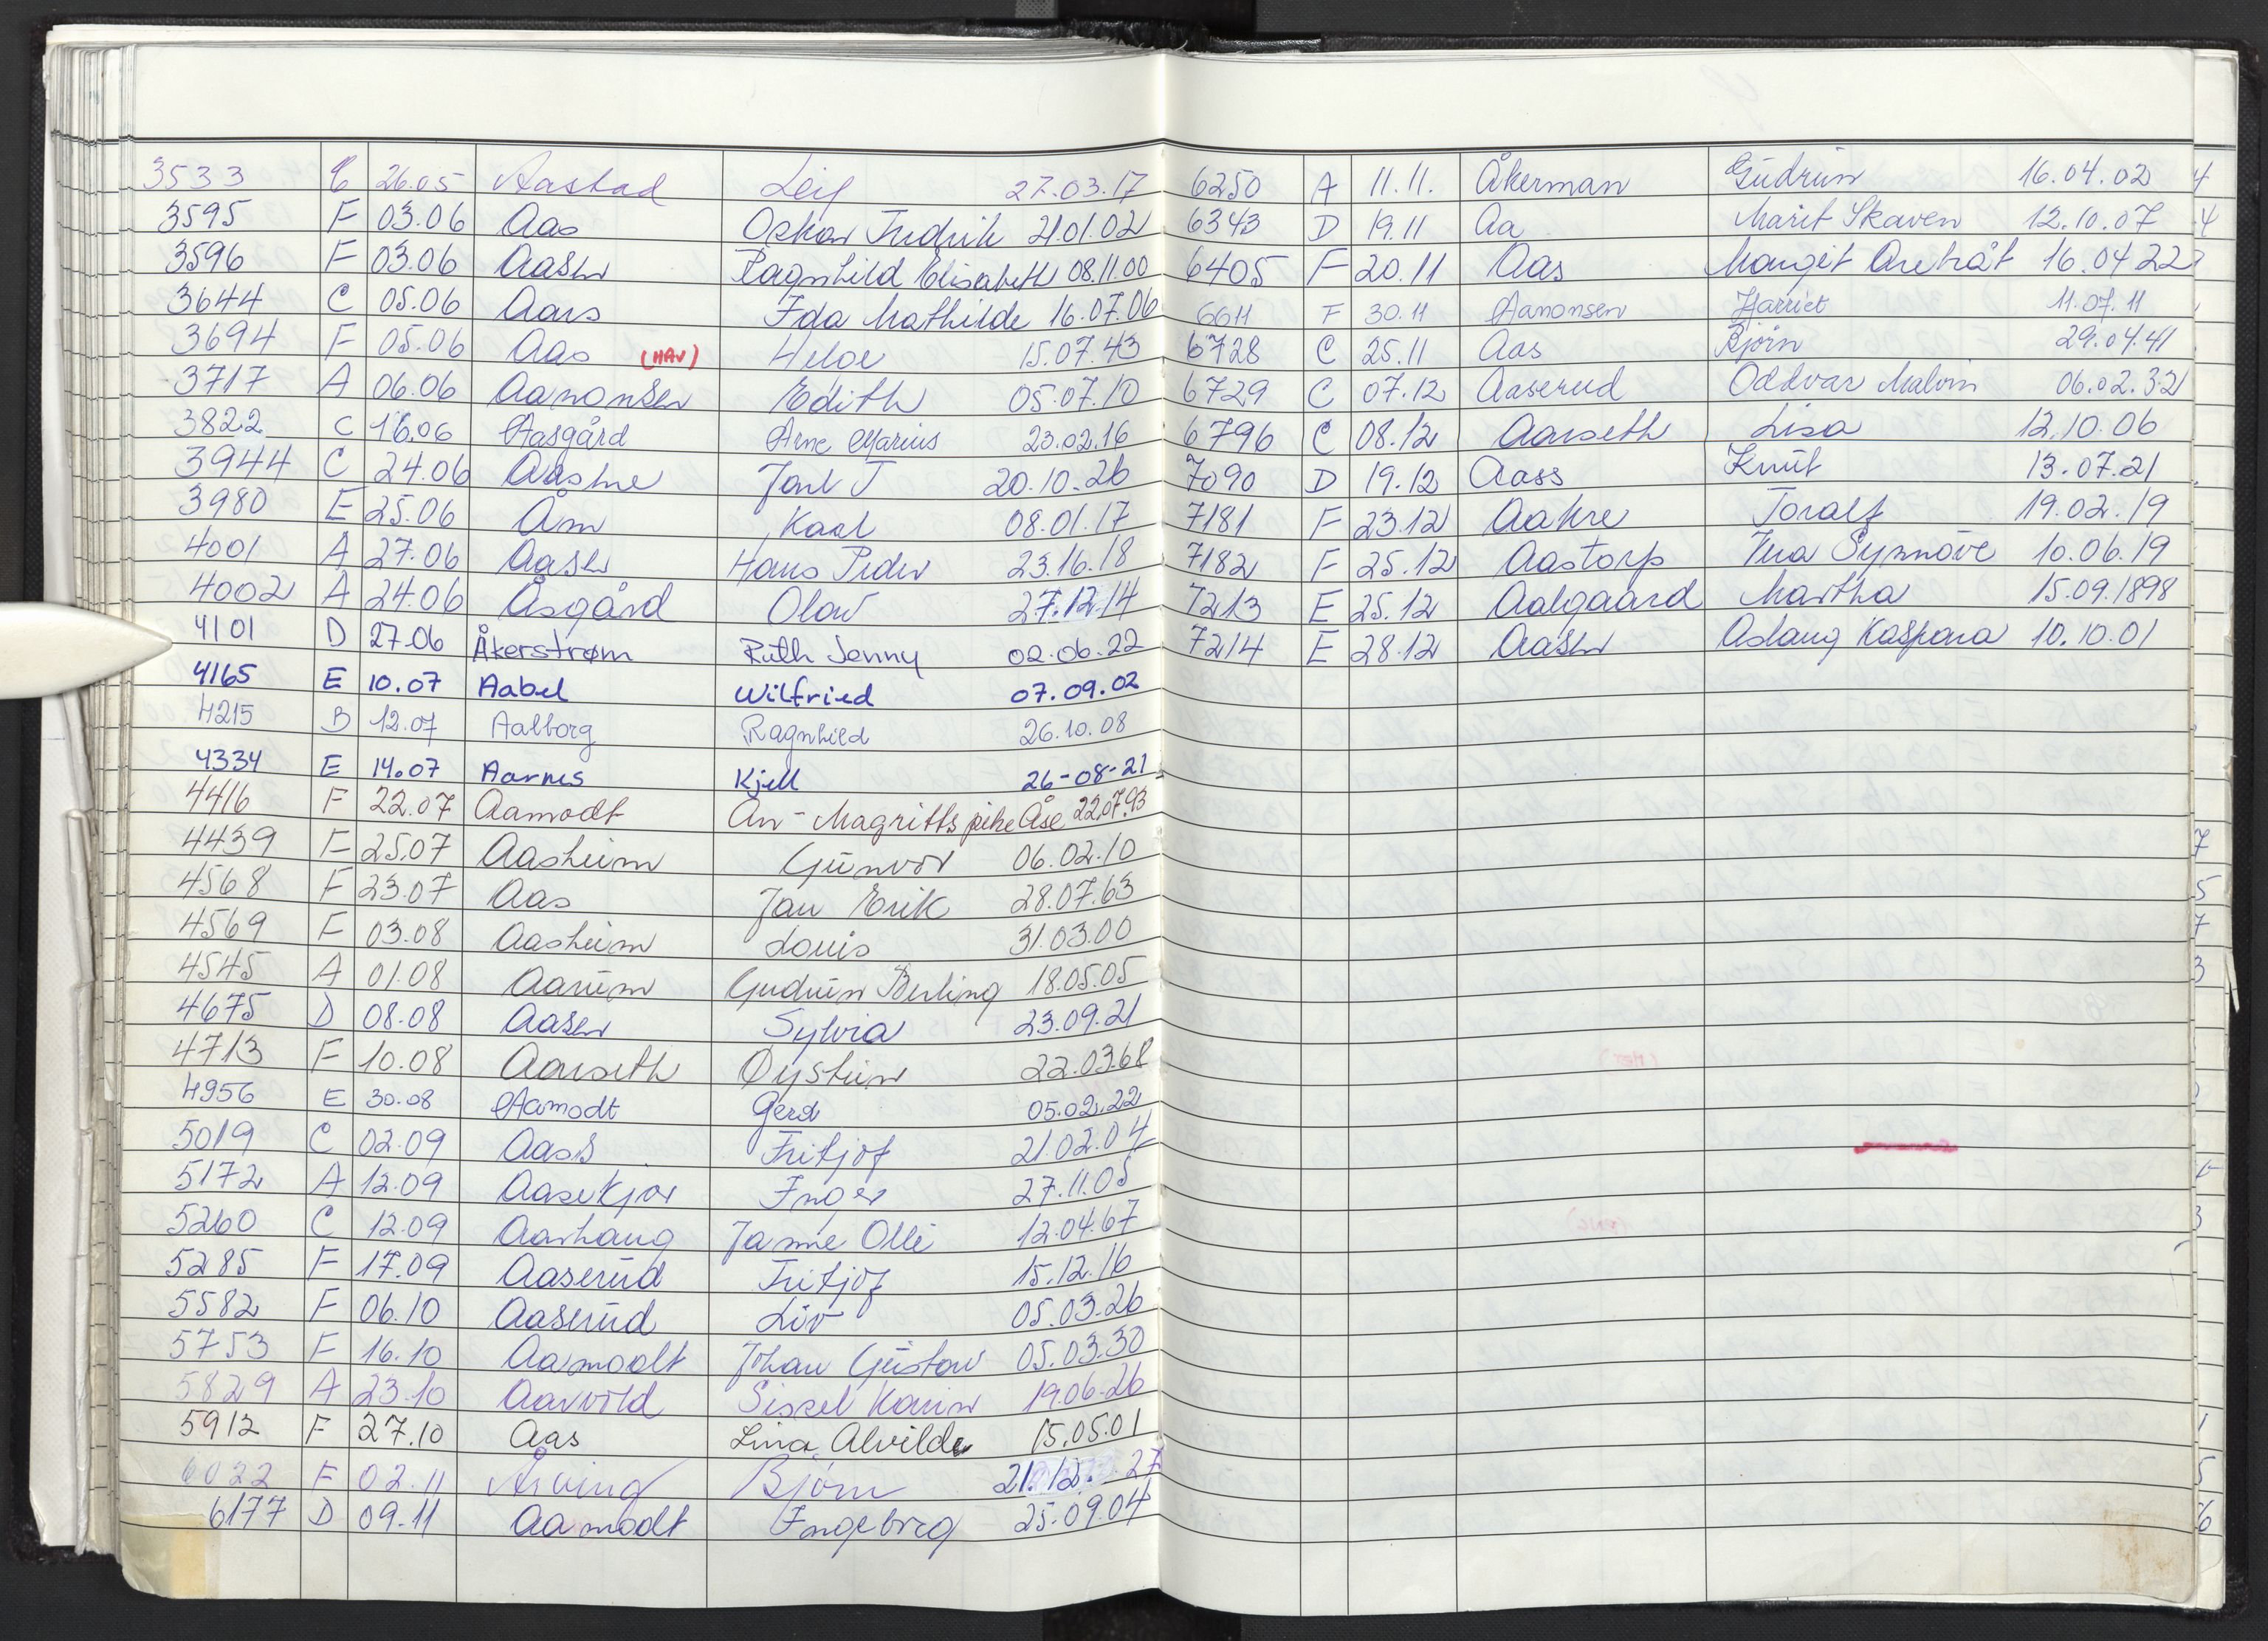 3533 C 26.05 Aastad Leif 27.03.17
3595 F 03.06 Aas Oskar Fredrik 21.01.02
3596 F 03.06 Aasen Ragnhild Elisabeth 08.11.00
3644 C 05.06 Aars Ida Mathilde 16.07.06
3694 F 05.06 Aas (HAV) Helge 15.07.43
3717 A 06.06 Aanonsen Edith 05.07.10
3822 C 16.06 Aasgård Arne Marius 23.02.16
3944 C 24.06 Aashe Joril J 20.10.26
3980 E 25.06 Åm Kaal 08.01.17
4001 A 27.06 Aasen Hans Peder 23.16.18
4002 A 24.06 Åsgård Olav 27.12.14
4101 D 27.06 Åkerstrøm Ruth Jenny 02.06.22
4165 E 10.07 Aabel Wilfried 07.09.02
4215 B 12.07 Aalborg Ragnhild 26.10.08
4334 E 14.07 Aarnes Kjell 26-08-21
4416 F 22.07 Aamodt An-Magritts pike Åse 22.07.93
4439 F 25.07 Aasheim Gunvor 06.02.10
4568 F 23.07 Aas Jan Erik 28.07.63
4569 F 03.08 Aasheim Louis 31.03.00
4545 A 01.08 Aarum Gudrun Berling 18.05.05
4675 D 08.08 Aasen Sylvia 23.09.21
4713 F 10.08 Aarseth Øystein 22.03.68
4956 E 30.08 Aamodt Gerd 05.02.22
5019 C 02.09 Aass Fritjof 21.02.04
5172 A 12.09 Aasekjær Inger 27.11.05
5260 C 12.09 Aarhaug Janne Olli 12.04.67
5285 F 17.09 Aaserud Fritjof 15.12.16
5582 F 06.10 Aaserud Liv 05.03.26
5753 F 16.10 Aamodt Johan Gustav 05.03.30
5829 A 23.10 Aarvold Sissel Karin 19.06.26
5912 F 27.10 Aas Lina Alvilde 15.05.01
6022 F 02.11 Årving Bjørn 21.12.27
6177 D 09.11 Aamodt Ingeborg 25.09.04
6250 A 11.11. Åkerman Gudrun 16.04.02
6343 D 19.11 Aa Marit Skaven 12.10.07
6405 F 20.11 Aas Margit Aretråt 16.04 22
6611 F 30.11 Aanonsen Harriet 11.07.11
6728 C 25.11 Aas Bjørn 29.04.41
6729 C 07.12 Aaserud Oddvar Malvin 06.02.32
6796 C 08.12 Aarseth Lisa 12.10.06
7090 D 19.12 Aass Knut 13.07.21
7181 F 23.12 Aakre Toralf 19.02.19
7182 F 25.12 Aastorp Synnøve 10.06.19
7213 E 25.12 Aalgaard Martha 15.09.1898
7214 E 28.12 Aasen Aslaug Kaspara 10.10.01